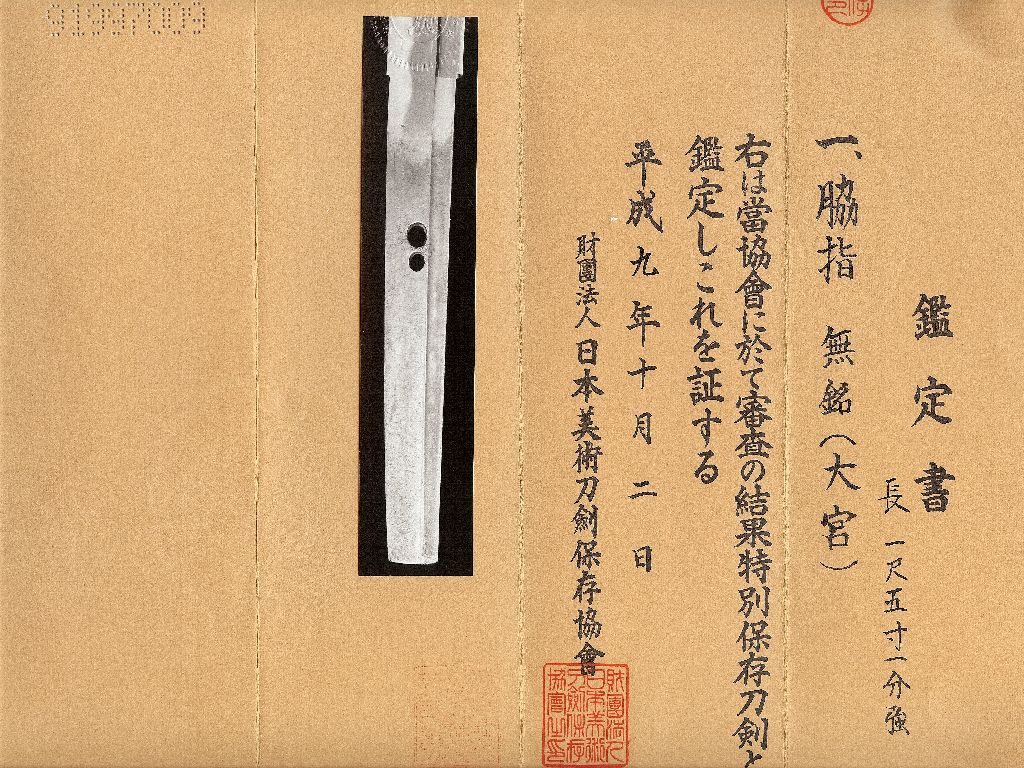 鑑定書
長一尺五寸一分強
一、脇指 無銘（大宮）
右は當協會に於て審査の結果特別保存刀剣と
鑑定しこれを証する
平成九年十月二日
財團法人日本美術刀劍保存協會